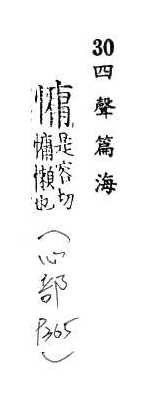 30四聲篇海
慵是容切
慵懶也
(心部
P.365)